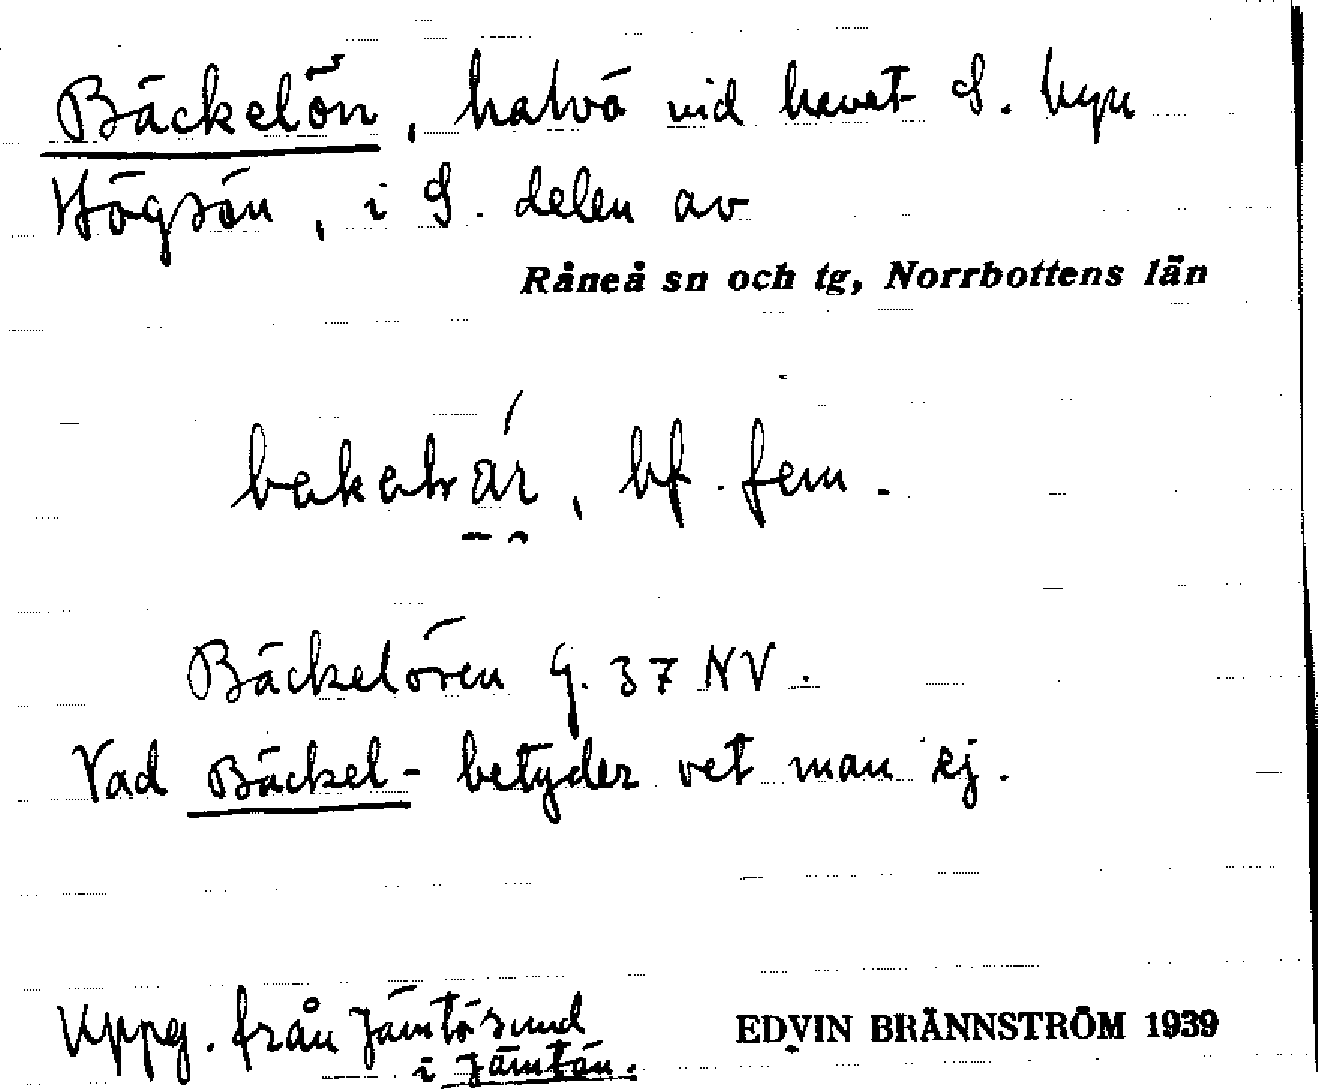 Bäckelön, halvö vid havet S. byn
Högsön, i S. delen av
Råneå sn och tg, Norrbottens län
bf. fem.
Bäckelören G. 37 NV.
Vad Bäckel- betyder vet man ej.
Uppg. från Jämtösund
i Jämtön.
EDVIN BRÄNNSTRÖM 1939